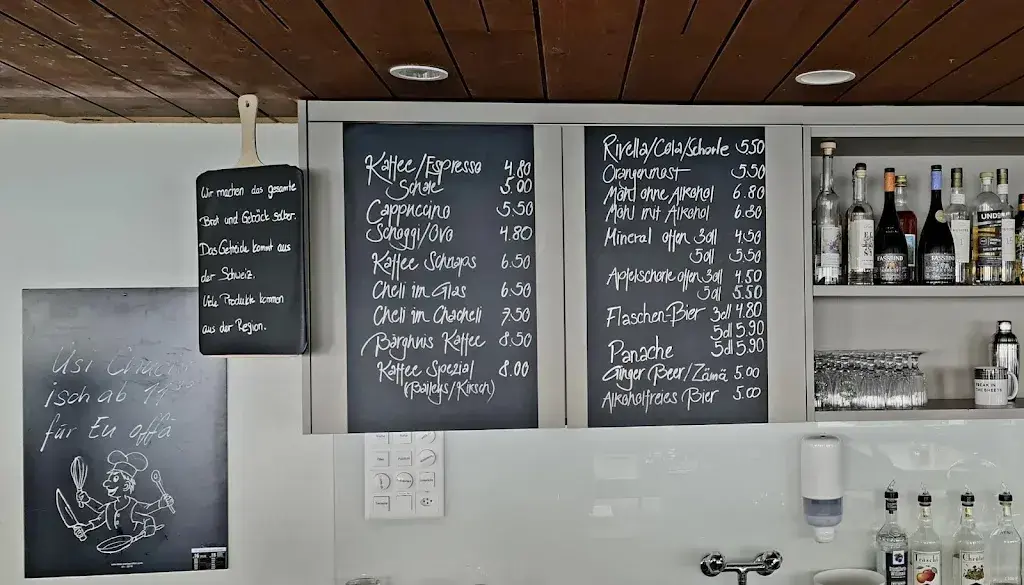 Wir machen das gesamte
Brot und Gebäck selber.
Das Getreide kommt aus
der Schweiz.
Viele Produkte kommen
aus der Region.
Üsi Chuchi
isch ab 11
für Eu offa
Kaffee/Espresso 4.80
Schale 5.00
Cappuccino 5.50
Schoggi/Ovo 4.80
Kaffee Schnaps 6.50
Cheli im Glas 6.50
Cheli im Chacheli 7.50
Bärghuis Kaffee 8.50
Kaffee Spezial 8.00
(Baileys/Kirsch)
Rivella/Cola/Schorle 5.50
Orangenmost 5.50
Möhl ohne Alkohol 6.80
Möhl mit Alkohol 6.80
Mineral offen 3dl 4.50
5dl 5.50
Apfelschorle offen 3dl 4.50
5dl 5.50
Flaschen-Bier 3dl 4.80
5dl 5.90
Panache 5dl 5.90
Ginger Beer/Zämä 5.00
Alkoholfreies Bier 5.00
FASSBIND
FASSBIND
UNDER